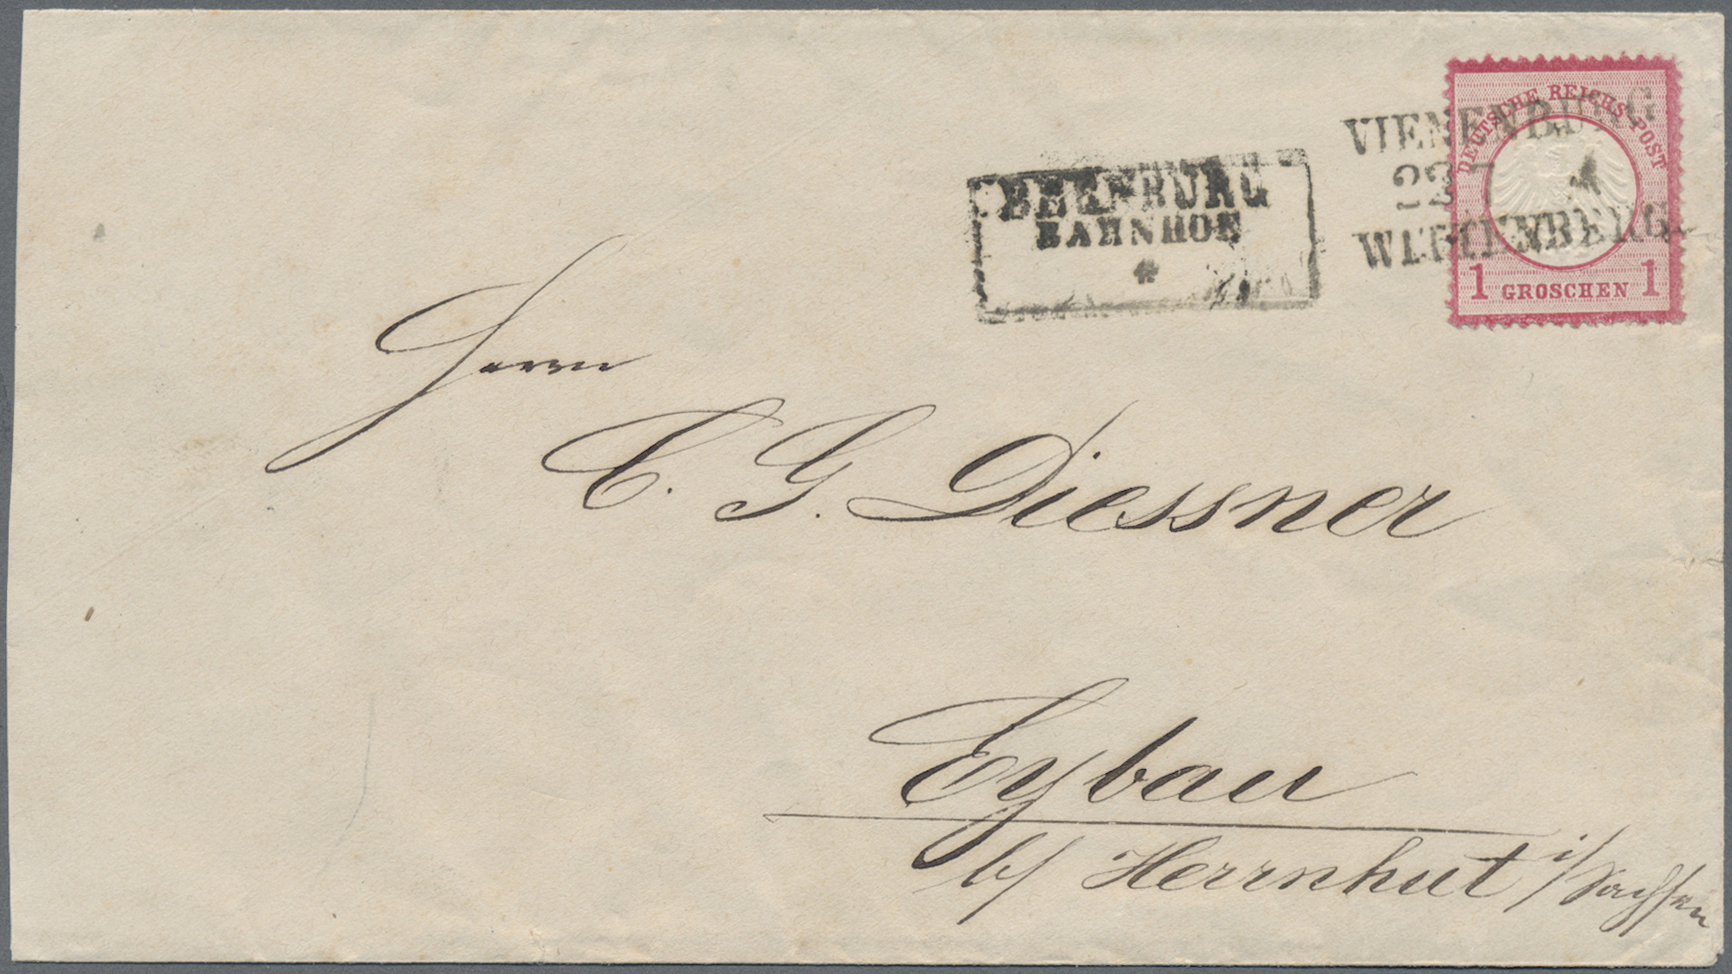 VIENENBURG
22 7
WITTENBERGE
DEUTSCHE REICHS-POST
1 GROSCHEN 1
BERNBURG
BAHNHOF
*
Herrn
C. G. Diessner
Eybau
b/ Herrnhut i/Sachsen